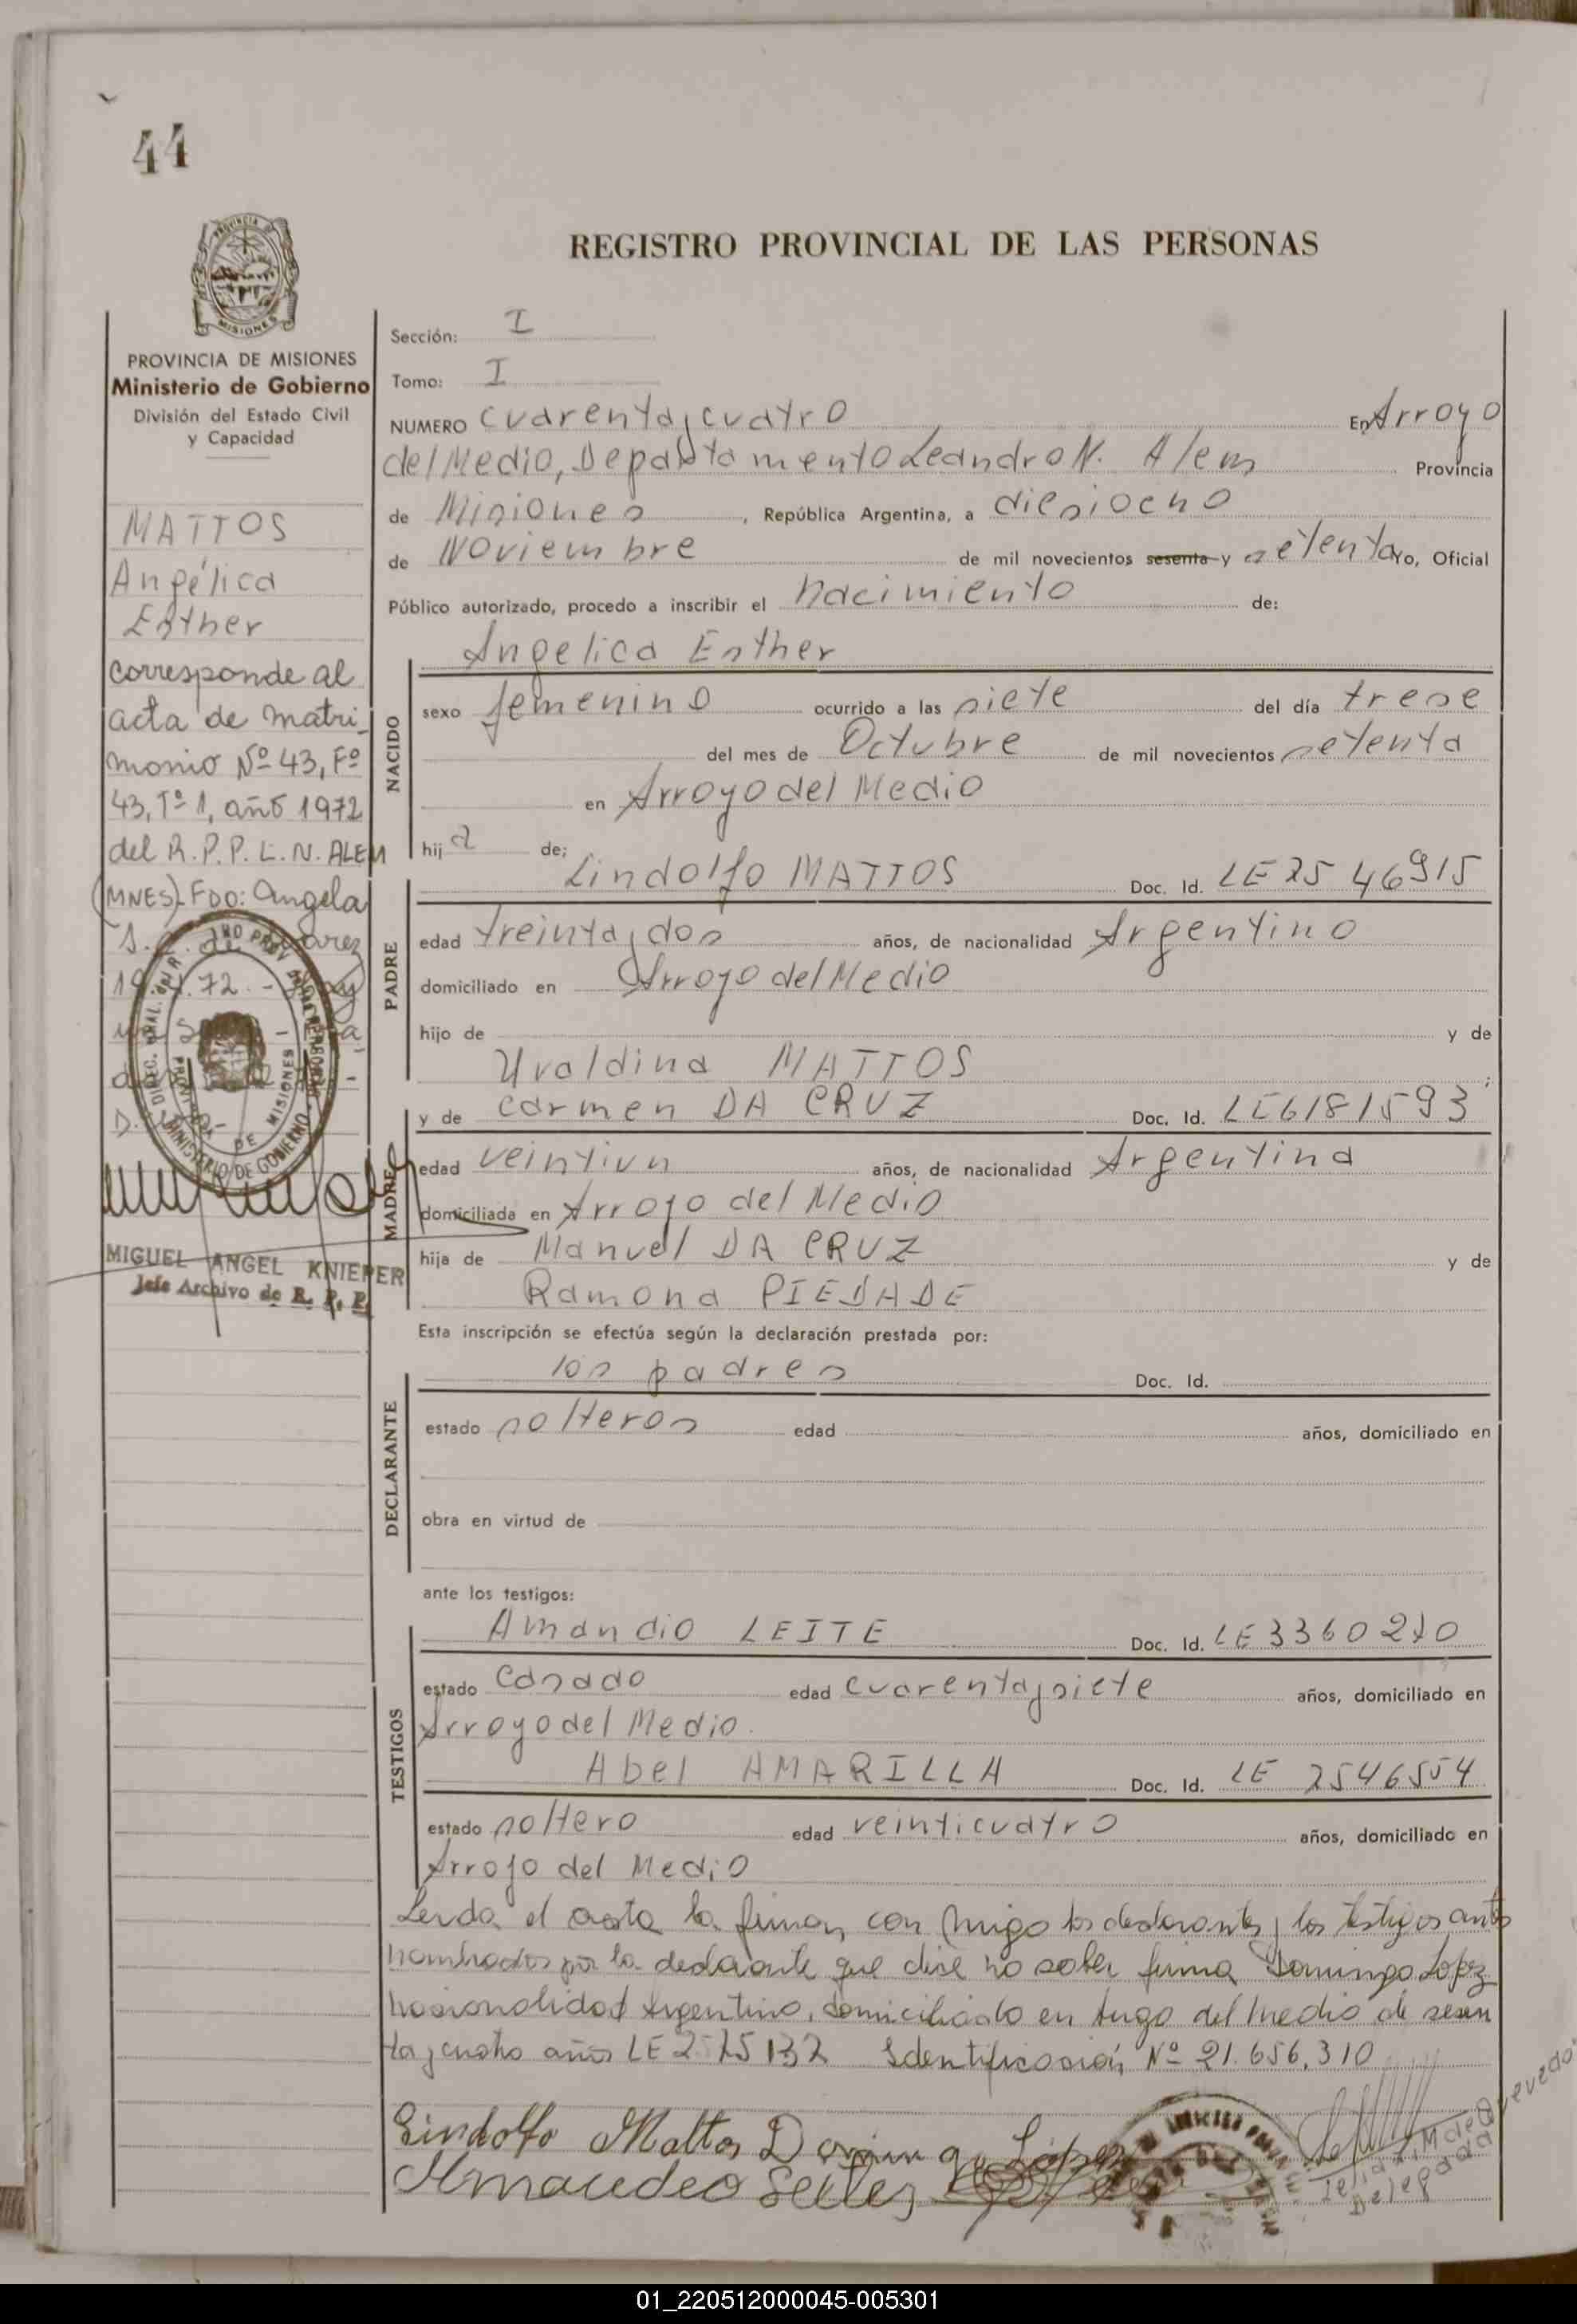 44
REGISTRO PROVINCIAL DE LAS PERSONAS
PROVINCIA DE MISIONES
Ministerio de Gobierno
División del Estado Civil
y Capacidad
MATTOS
Angélica
Esther
corresponde al
acta de matri-
monio Nº 43, Fº
43, Tº 1, año 1972
del R.P.P. L.N. ALEM
(MNES)- FDO: Angela
MIGUEL ANGEL KNIEPER
Jefe Archivo de R. P. P.
Sección: I
Tomo: I
NUMERO cuarenta y cuatro En Arroyo
del Medio, Departamento Leandro N. Alem Provincia
de Misiones, República Argentina, a diesiocho
de Noviembre de mil novecientos sesenta y setenta Yo, Oficial
Público autorizado, procedo a inscribir el nacimiento de:
Angelica Esther
NACIDO
sexo femenino ocurrido a las siete del día trese
del mes de Octubre de mil novecientos setenta
en Arroyo del Medio
hija de;
Lindolfo MATTOS Doc. Id. LE 25 46915
PADRE
edad treinta y dos años, de nacionalidad Argentino
domiciliado en Arroyo del Medio
hijo de y de
Uvaldina MATTOS
MADRE
y de Carmen DA CRUZ Doc. Id. LE6181593
edad veintiun años, de nacionalidad Argentina
domiciliada en Arroyo del Medio
hija de Manuel DA CRUZ y de
Ramona PIEDADE
Esta inscripción se efectúa según la declaración prestada por:
los padres Doc. Id.
DECLARANTE
estado solteros edad años, domiciliado en
obra en virtud de
ante los testigos:
Amandio LEITE Doc. Id. LE 3360210
TESTIGOS
estado Casado edad cuarenta y siete años, domiciliado en
Arroyo del Medio.
Abel AMARILLA Doc. Id. LE 2546554
estado soltero edad veinticuatro años, domiciliado en
Arroyo del Medio
Leida el acta la firman con migo los declarantes y los testigos antes
nombrados por la declarante que dise no saber firma Domingo Lopez
nasionalidad Argentino, domiciliado en Arroyo del Medio de sesen
ta y cuatro años LE 2525132 Identificasión Nº 21.656.310
Lindolfo Mattos Domingo López
01_220512000045-005301